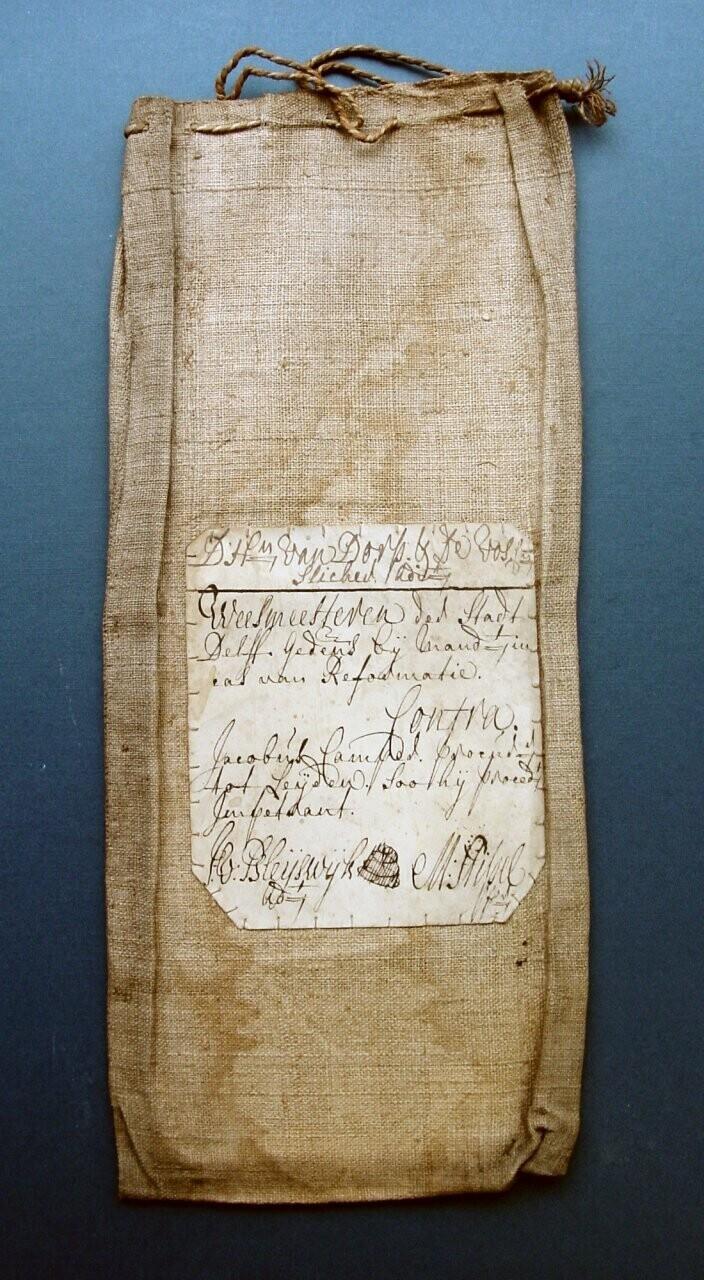 D'Hn van Dorp. & De Vos.
Slicher
Weesmeesteren der Stadt
Delff Gedens bij Mandt in
cas van Reformatie.
Contra.
Jacobus Camper.
tot Leijden. Soo hij procedt
Impetrant.
v: Bleijswijk M:
adt